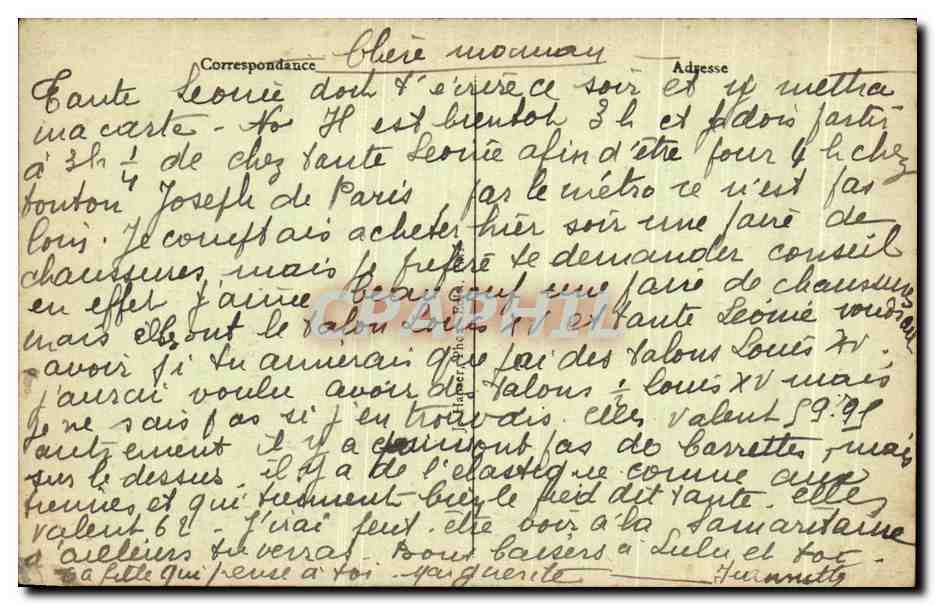 Chère maman
Correspondance
Adresse
Tante Léonie doit t'écrire ce soir et y mettra
ma carte - Il est bientôt 3h et je dois partir
à 3h 1/4 de chez tante Léonie afin d'être pour 4 h chez
tonton Joseph de Paris, par le métro ce n'est pas
loin. Je comptais acheter hier soir une paire de
chaussures, mais je préfère te demander conseil
en effet j'aime beaucoup une paire de chaussures
mais elles ont le talon Louis XV et tante Léonie voudrait
savoir si tu aimerais que j'ai des talons Louis XV.
j'aurai voulu avoir des talons 1/2 Louis XV mais
je ne sais pas si j'en trouvais. elles valent 59.95
autrement il y a qui n'ont pas de barrettes, mais
sur le dessus il y a de l'élastique comme aux
miennes et qui tiennent bien le pied dit tante. elles
valent 62 - J'irai peut-être voir à la Samaritaine
d'ailleurs tu verras. Bons baisers à Lulu et toi.
ta fille qui pense à toi. Marguerite
Jeannette
CPAPHIL